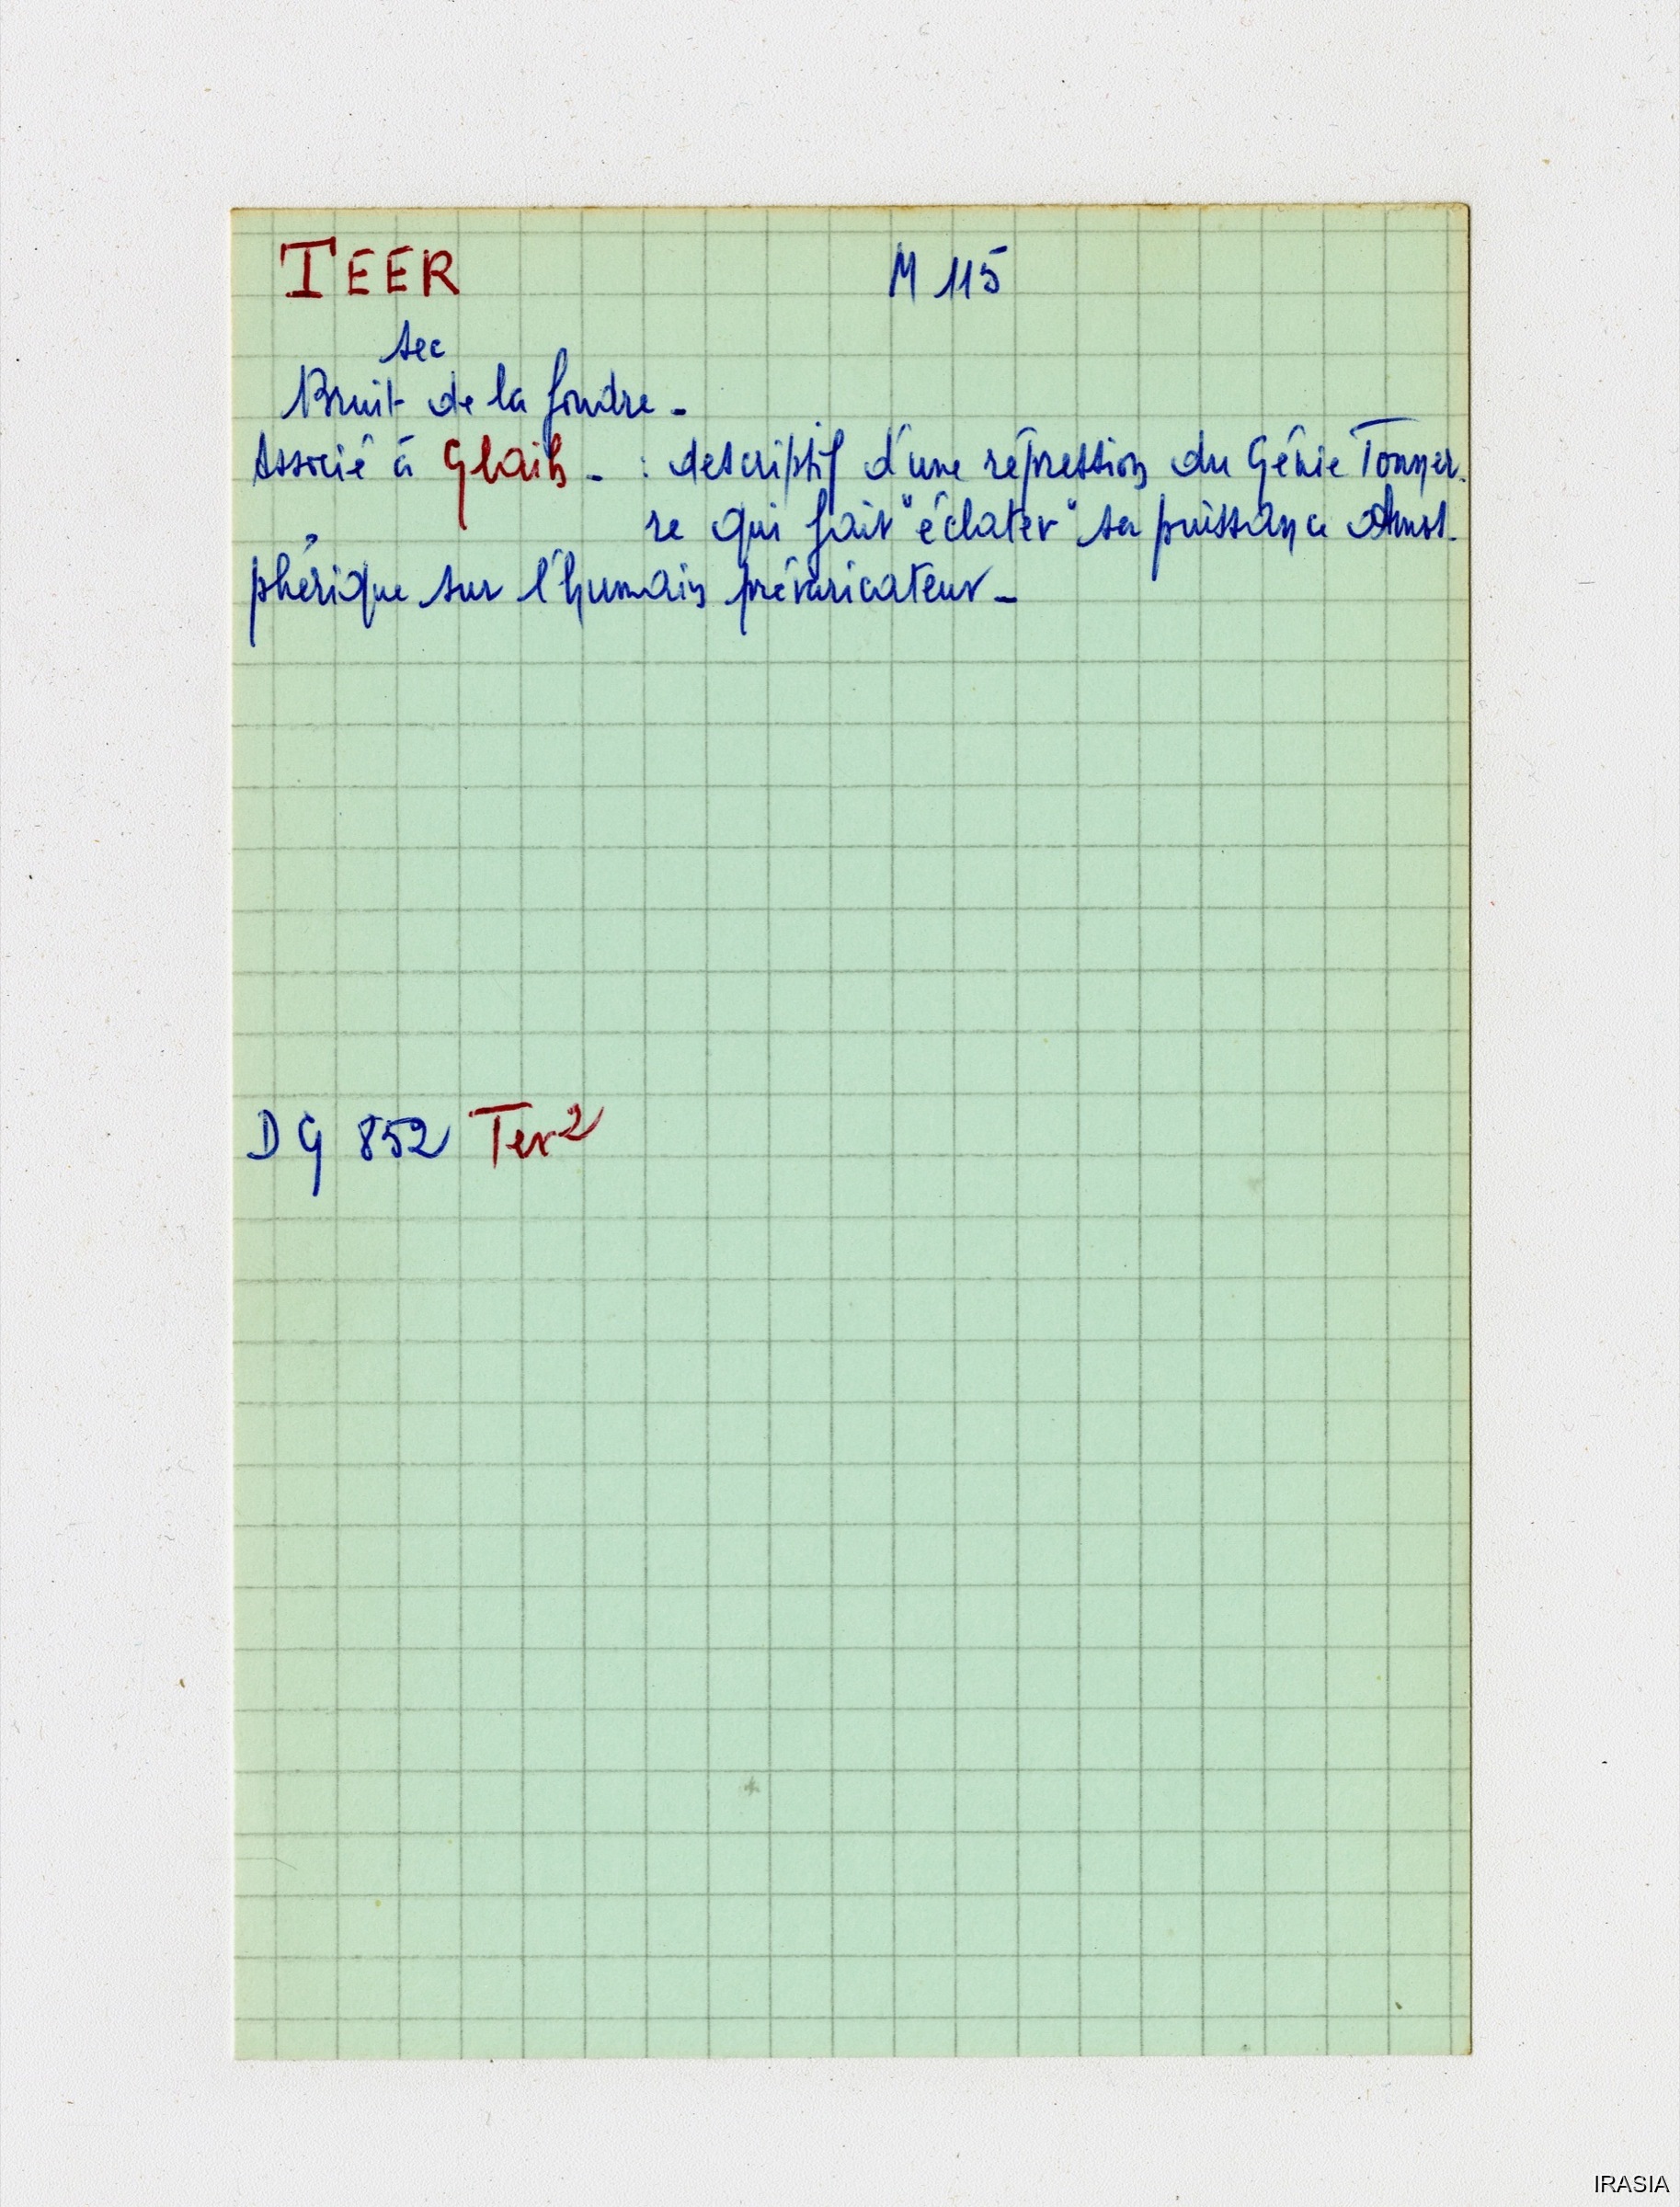 TEER M 115
sec
Bruit de la foudre -
Associé à Glaih - : descriptif d'une répression du Génie Tonner-
re qui fait "éclater" sa puissance atmos-
phérique sur l'humain prévaricateur -
DG 852 Ter²
IRASIA